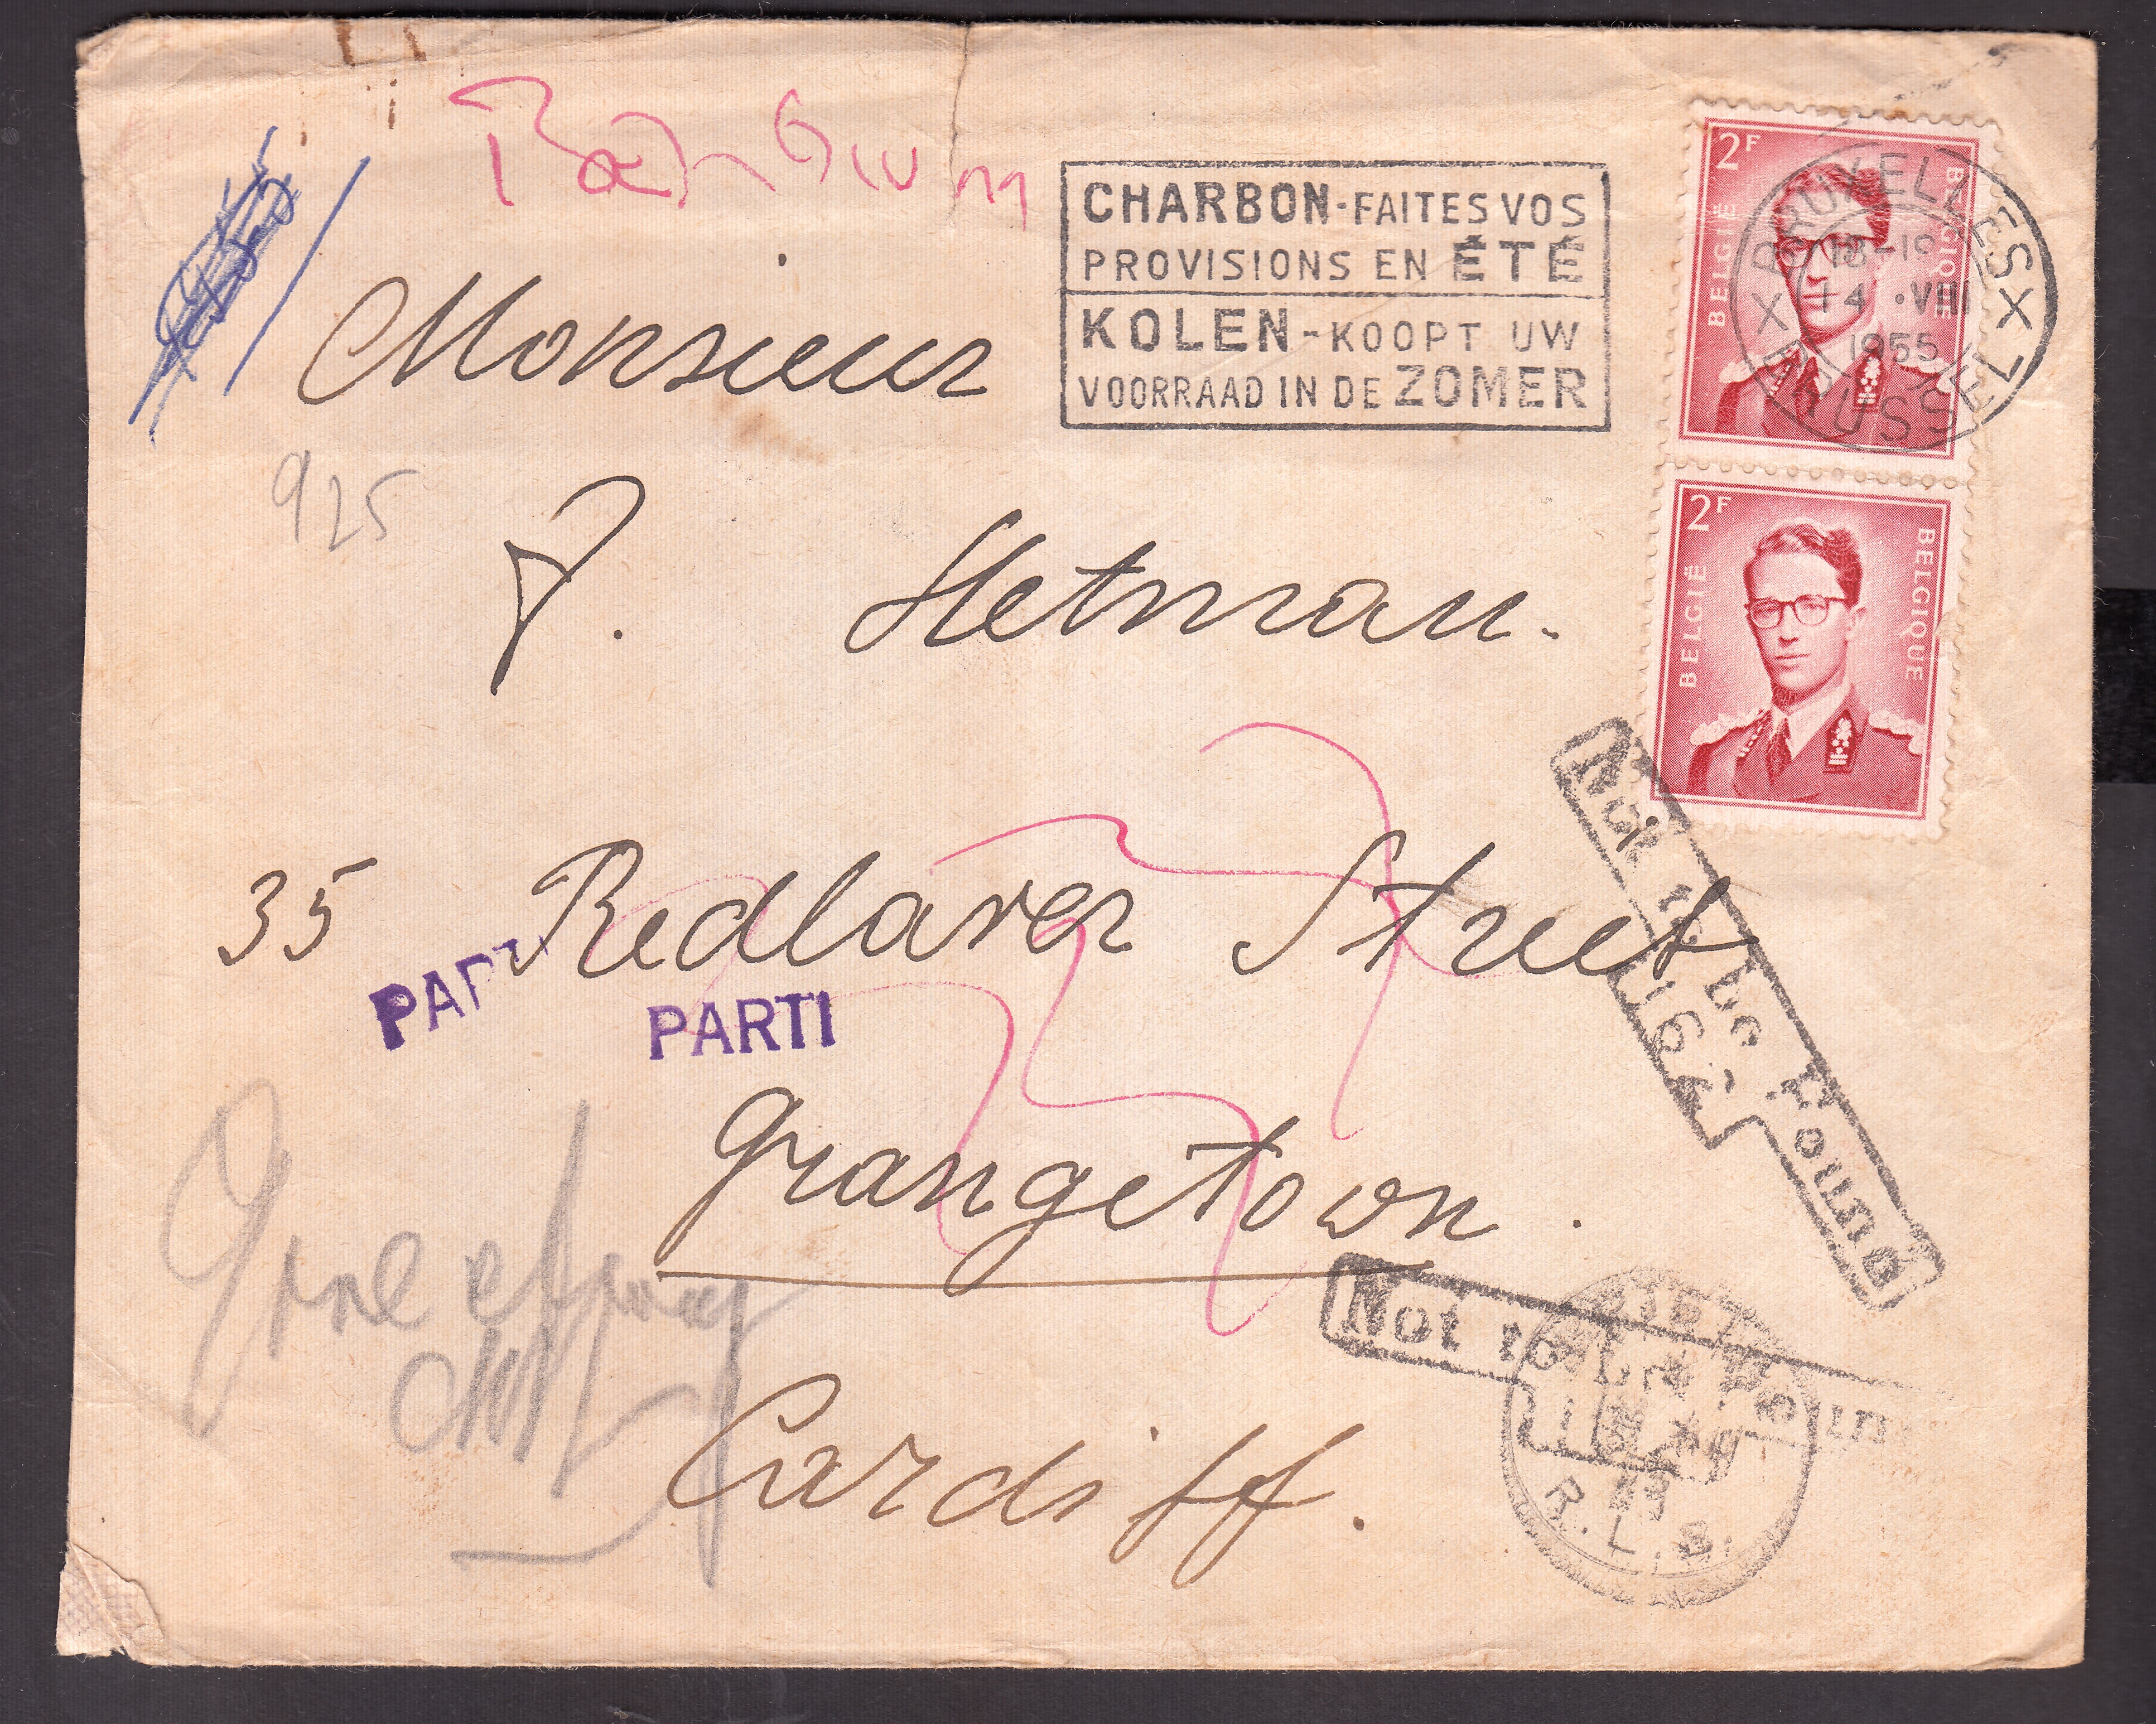 CHARBON-FAITES VOS
PROVISIONS EN ÉTÉ
KOLEN-KOOPT UW
VOORRAAD IN DE ZOMER
2F
BELGIË
BELGIQUE
BRUXELLES X
18-19
14 .VIII
1955
BRUSSEL X
2F
BELGIË
BELGIQUE
Monsieur
925
P. Hetman.
35 Redlaver Street
PARTI
PARTI
Grangetown.
Cardiff.
Not to be Found
162
Not to be Foun
R.L.B.